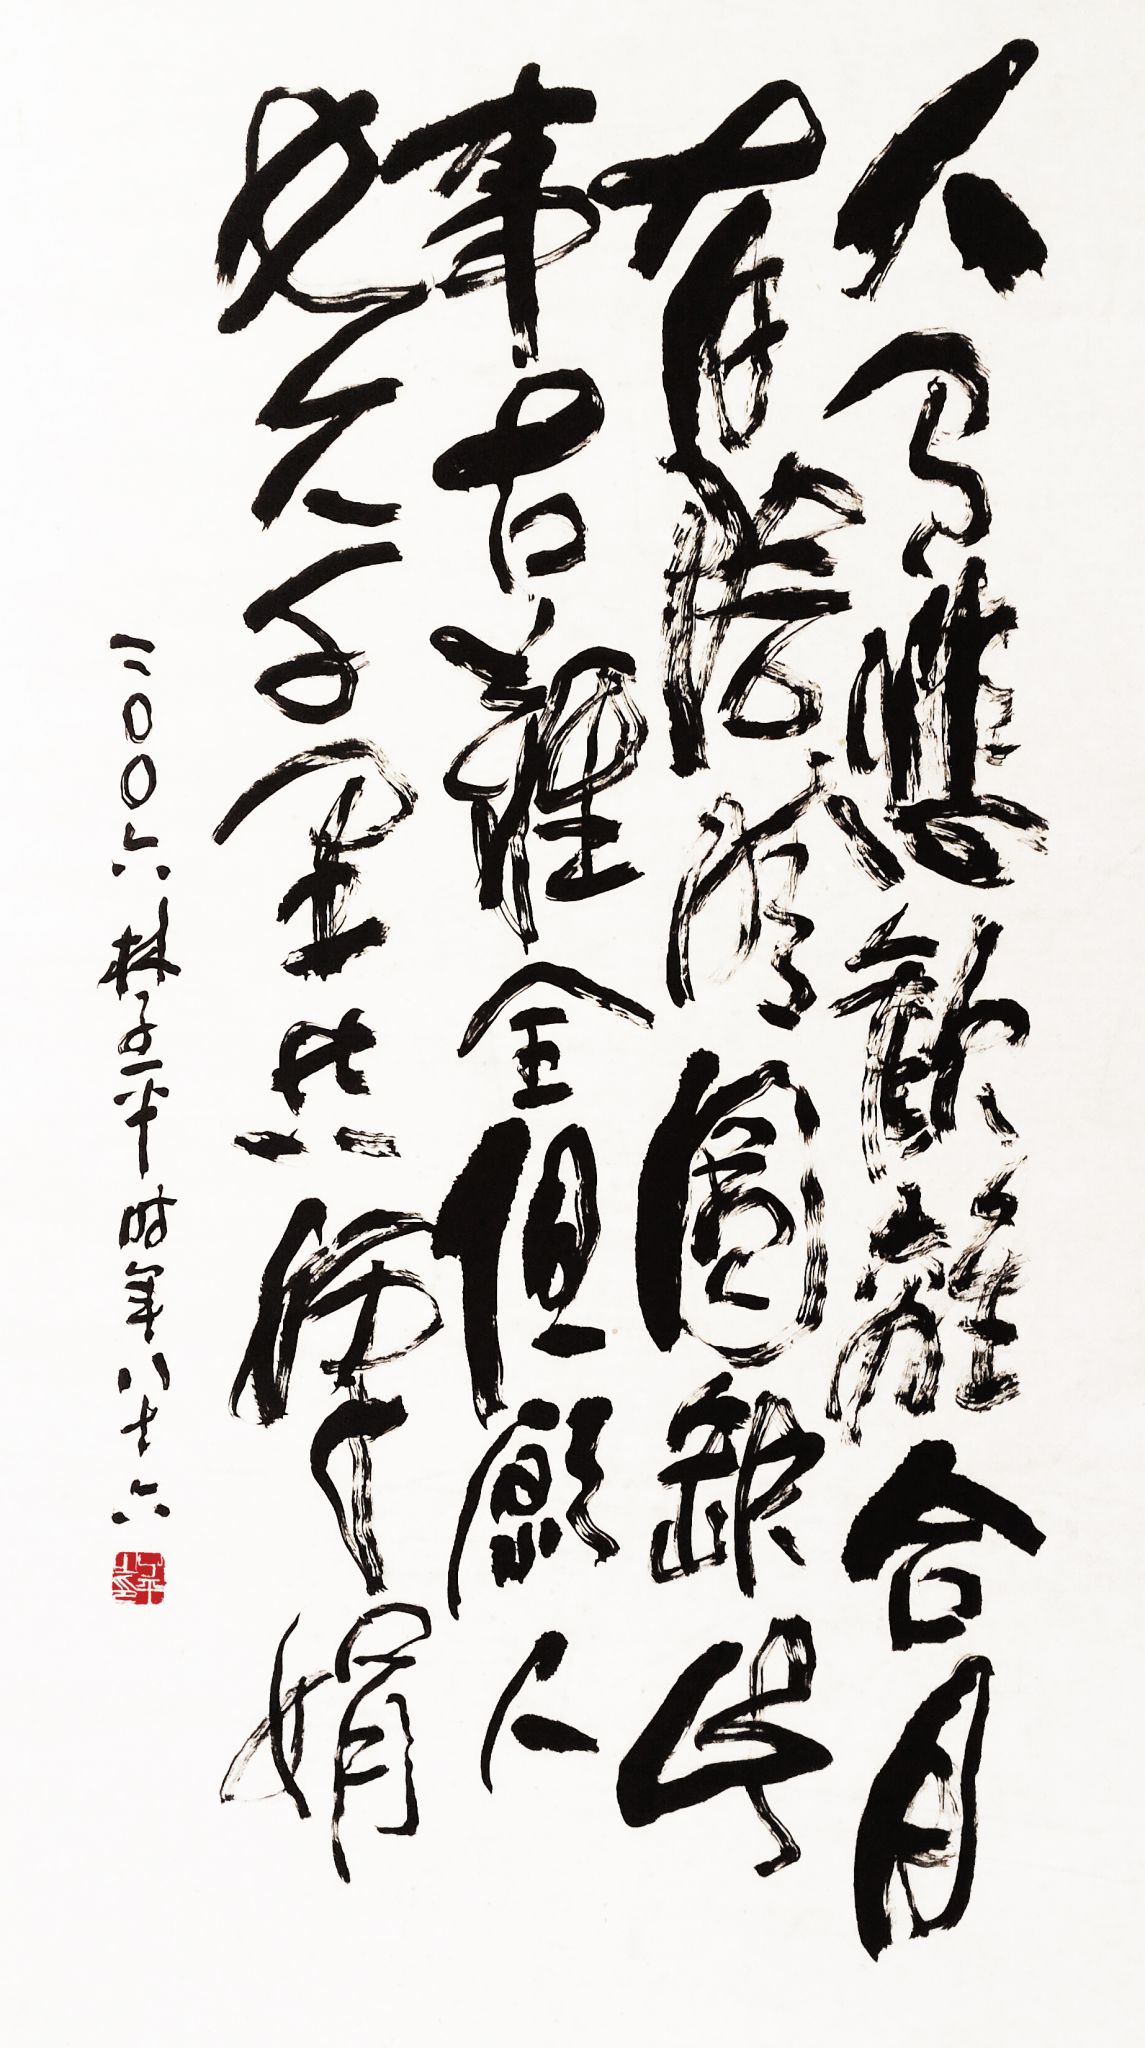 人有悲歡離合月
有陰晴圓缺此
事古難全但願人
長久千里共嬋娟
二〇〇六林子平时年八十六